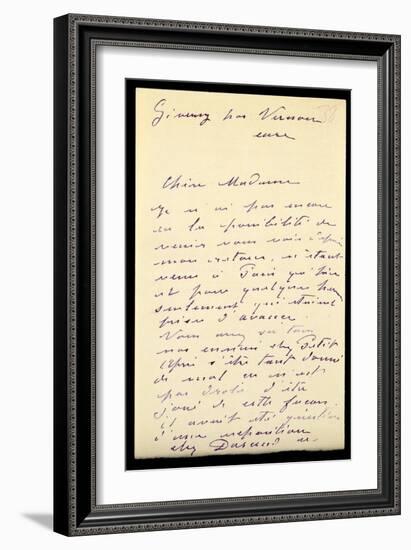 Giverny par Vernon 38
eure
Chère Madame
Je n'ai pas encore
eu la possibilité de
venir vous voir depuis
mon retour, n'étant
venu à Paris qu'hier
et pour quelques
seulement qui étaient
prises d'avance.
Vous avez su tous
nos ennuis chez Petit
après s'être tant donné
de mal on n'est
pas d'être
joué de cette façon.
il avait été question
d'une exposition
chez Durand